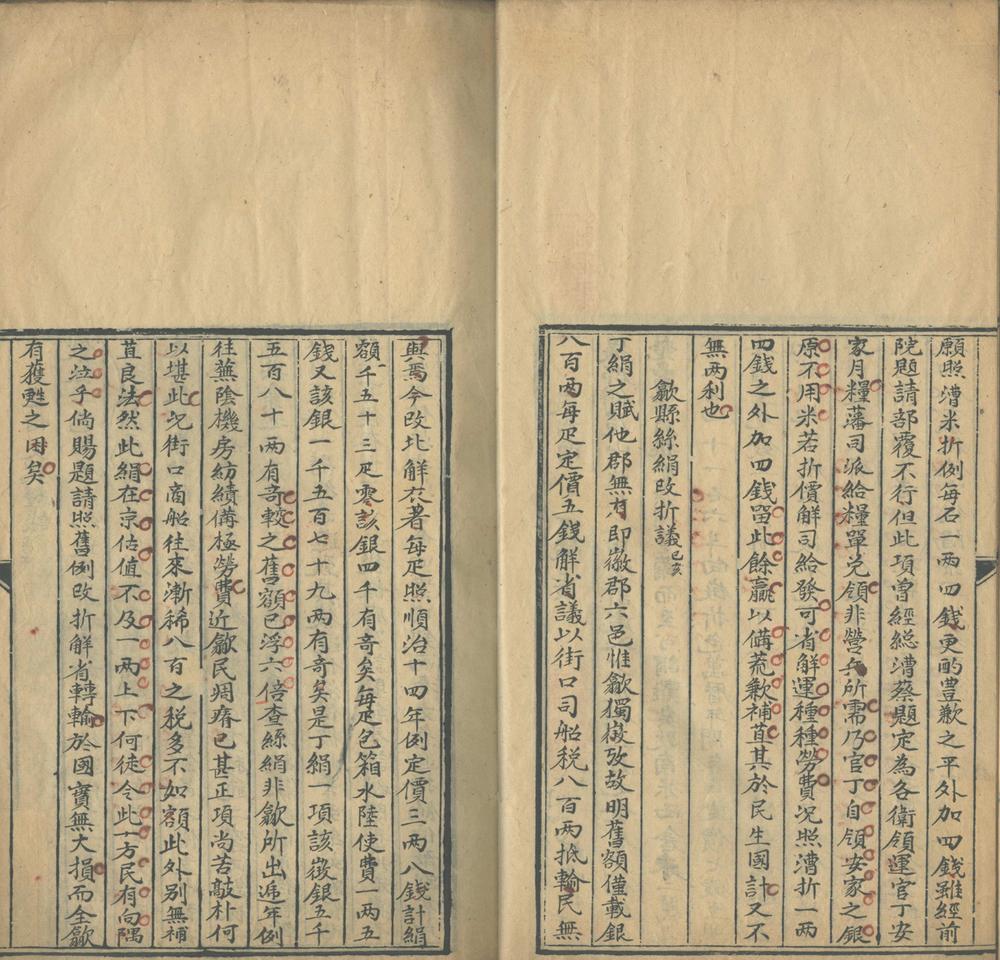 願照漕米折例每石一两四錢更酌豊歉之平外加四錢雖經前
院題請部覆不行但此項曽經総漕蔡題定為各衛領運官丁安
家月糧藩司派給糧單兑領非營兵所需乃官丁自領安家之銀
原不用米若折價解司給發可省解運種種勞費况照漕折一两
四錢之外加四錢留此餘贏以備荒歉補苴其於民生國計又不
無两利也
歙縣絲絹改折議己亥
丁絹之賦他郡無有即徽郡六邑惟歙獨徵攷故明舊額僅載銀
八百两每疋定價五錢解省議以街口司船税八百两抵輸民無
與焉今改北解衣著每疋照順治十四年例定價三两八錢計絹
額千五十三疋零該銀四千有奇矣每疋包箱水陸使費一两五
錢又該銀一千五百七十九两有奇矣是丁絹一項該徵銀五千
五百八十两有奇較之舊額已浮六倍查絲絹非歙所出逓年例
往蕪陰機房紡績備極勞費近歙民凋瘵已甚正項尚苦敲朴何
以堪此况街口商船往來漸稀八百之税多不如額此外别無補
苴良法然此絹在京估值不及一两上下何徒令此一方民有向隅
之泣乎倘賜題請照舊例改折解省轉輸於國寳無大損而全歙
有獲甦之困矣